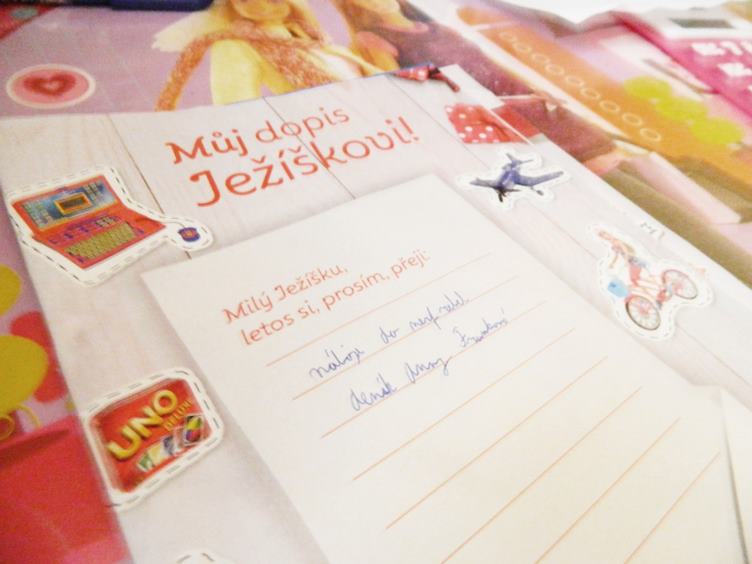 Můj dopis
Ježíškovi!
Milý Ježíšku,
letos si, prosím, přeji:
náboje do nerf rebel
deník Anny Frankové
UNO
DELUXE